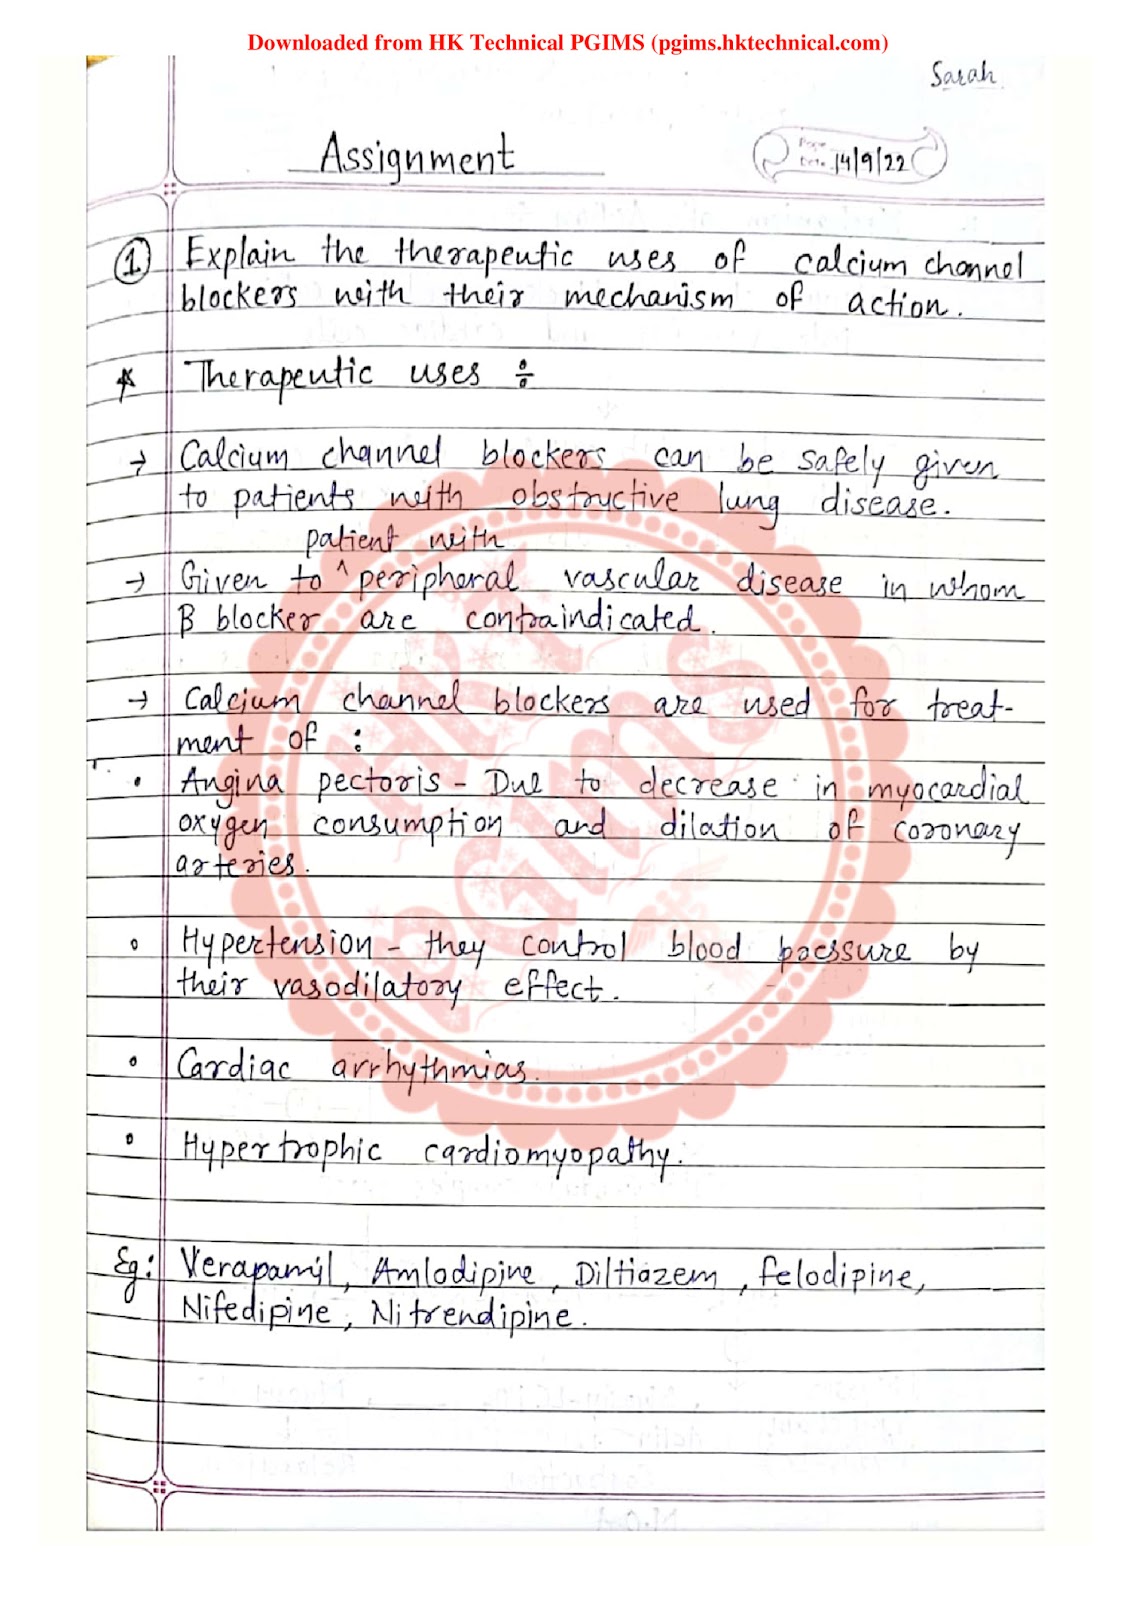 Downloaded from HK Technical PGIMS (pgims.hktechnical.com)
Sarah
Assignment
Page
Date 14/9/22
① Explain the therapeutic uses of calcium channel
blockers with their mechanism of action.
* Therapeutic uses ÷
→ Calcium channel blockers can be safely given
to patients with obstructive lung disease.
patient with
→ Given to ^ peripheral vascular disease in whom
β blocker are contraindicated.
→ Calcium channel blockers are used for treat-
ment of :
• Angina pectoris - Due to decrease in myocardial
oxygen consumption and dilation of coronary
arteries.
• Hypertension - they control blood pressure by
their vasodilatory effect.
• Cardiac arrhythmias.
• Hypertrophic cardiomyopathy.
Eg: Verapamil, Amlodipine, Diltiazem, felodipine,
Nifedipine, Nitrendipine.
HK
PGIMS